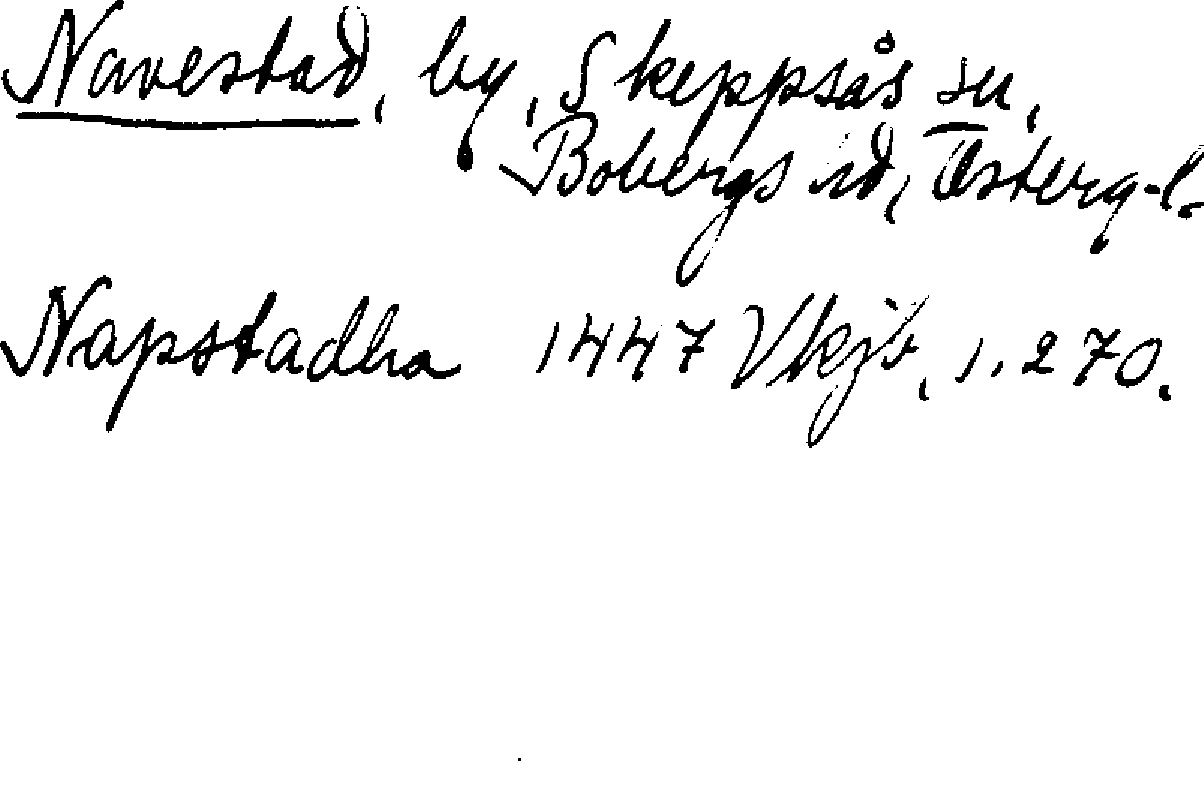 Navestad, by, Skeppsås sn,
Bobergs hd, Österg.l.
Napstadha 1447 Vkjb, s. 270.